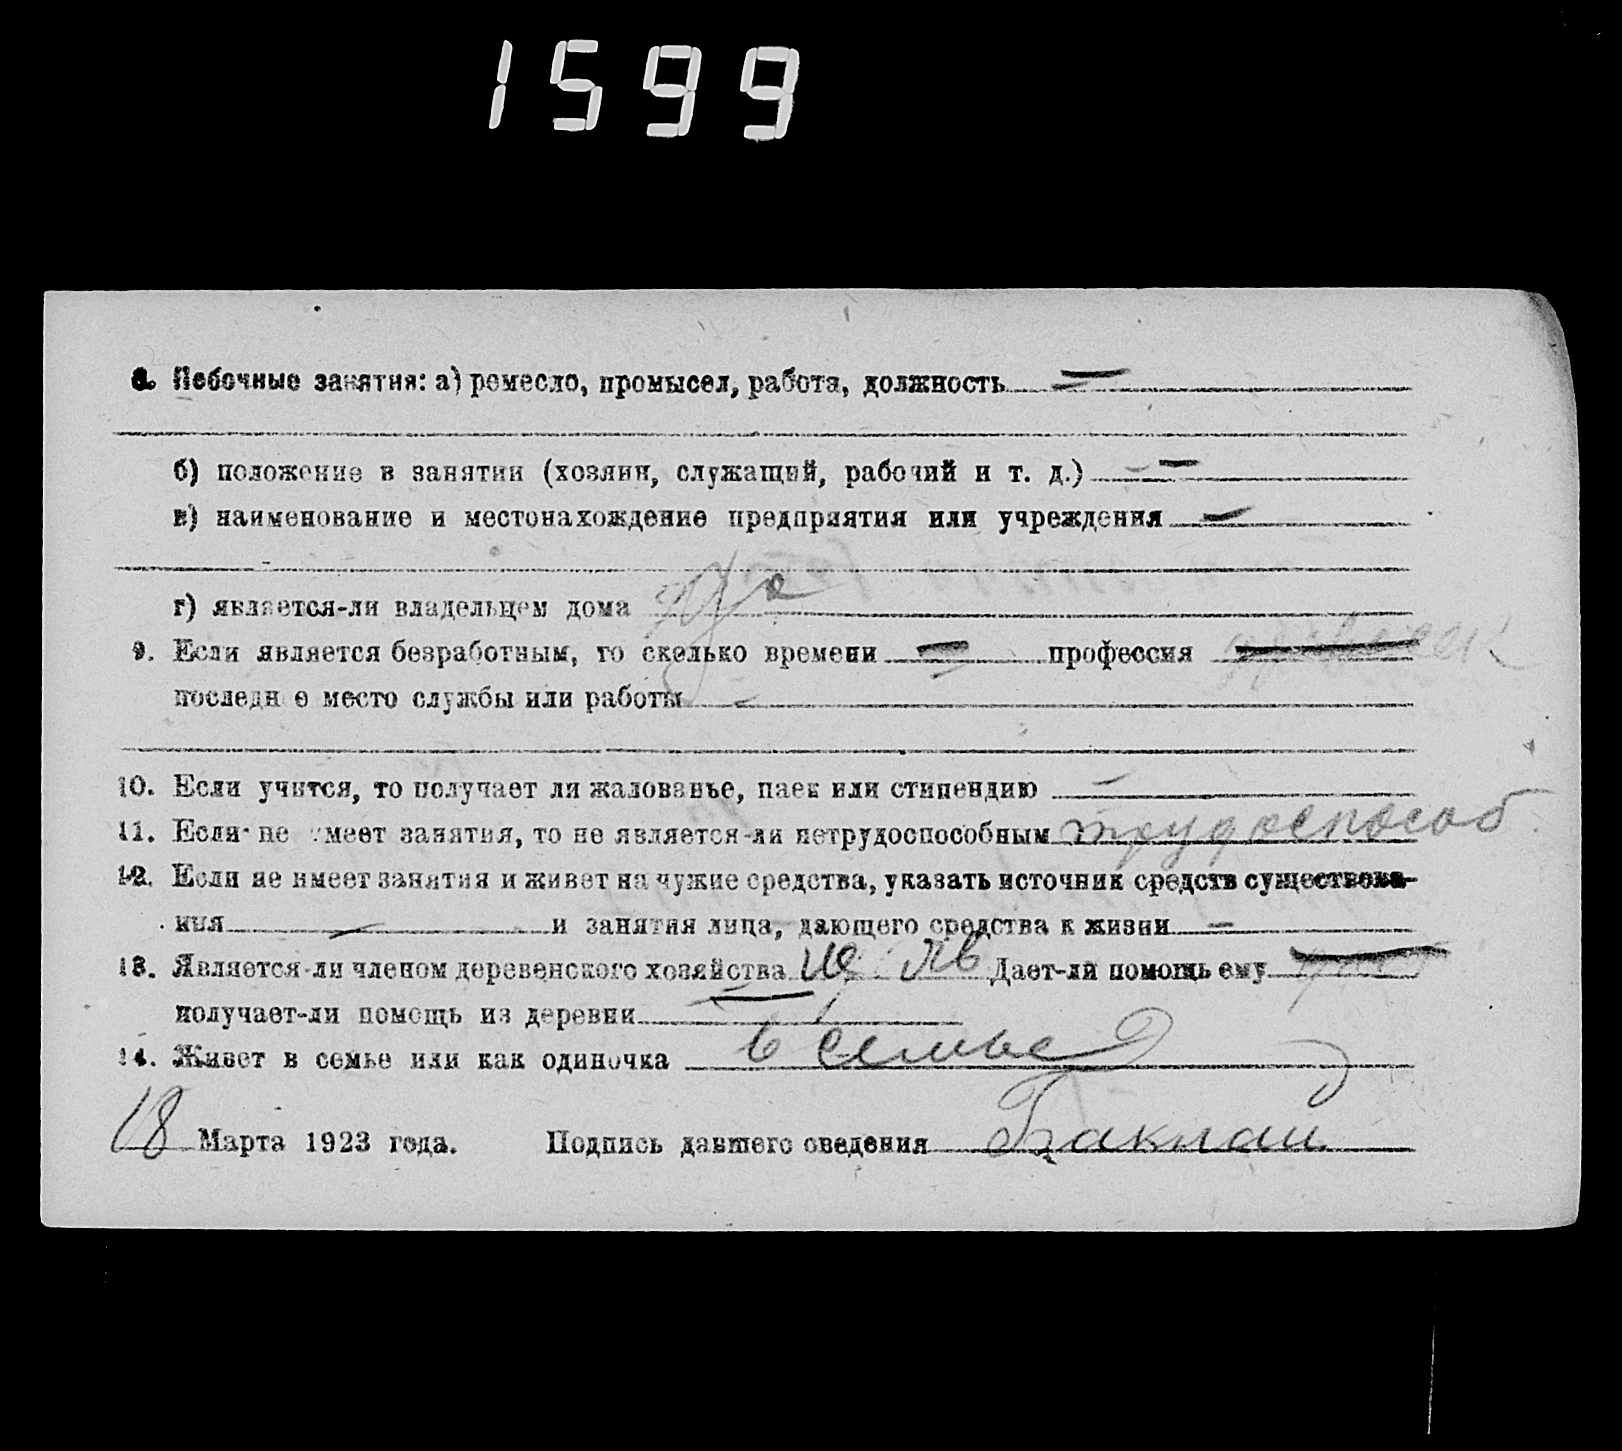 1599
8. Побочные занятия: а) ремесло, промысел, работа, должность —
б) положение в занятии (хозяин, служащий, рабочий и т. д.) —
в) наименование и местонахождение предприятия или учреждения —
г) является-ли владельцем дома
9. Если является безработным, то сколько времени — профессия
последн е место службы или работы —
10. Если учится, то получает ли жалованье, паек или стипендию —
11. Если не имеет занятия, то не является-ли нетрудоспособным трудоспособ
12. Если не имеет занятия и живет на чужие средства, указать источник средств существова-
ния — и занятия лица, дающего средства к жизни —
13. Является-ли членом деревенского хозяйства Дает-ли помощь ему
получает-ли помощь из деревни —
14. Живет в семье или как одиночка в семье
18 Марта 1923 года. Подпись давшего сведения Баклан